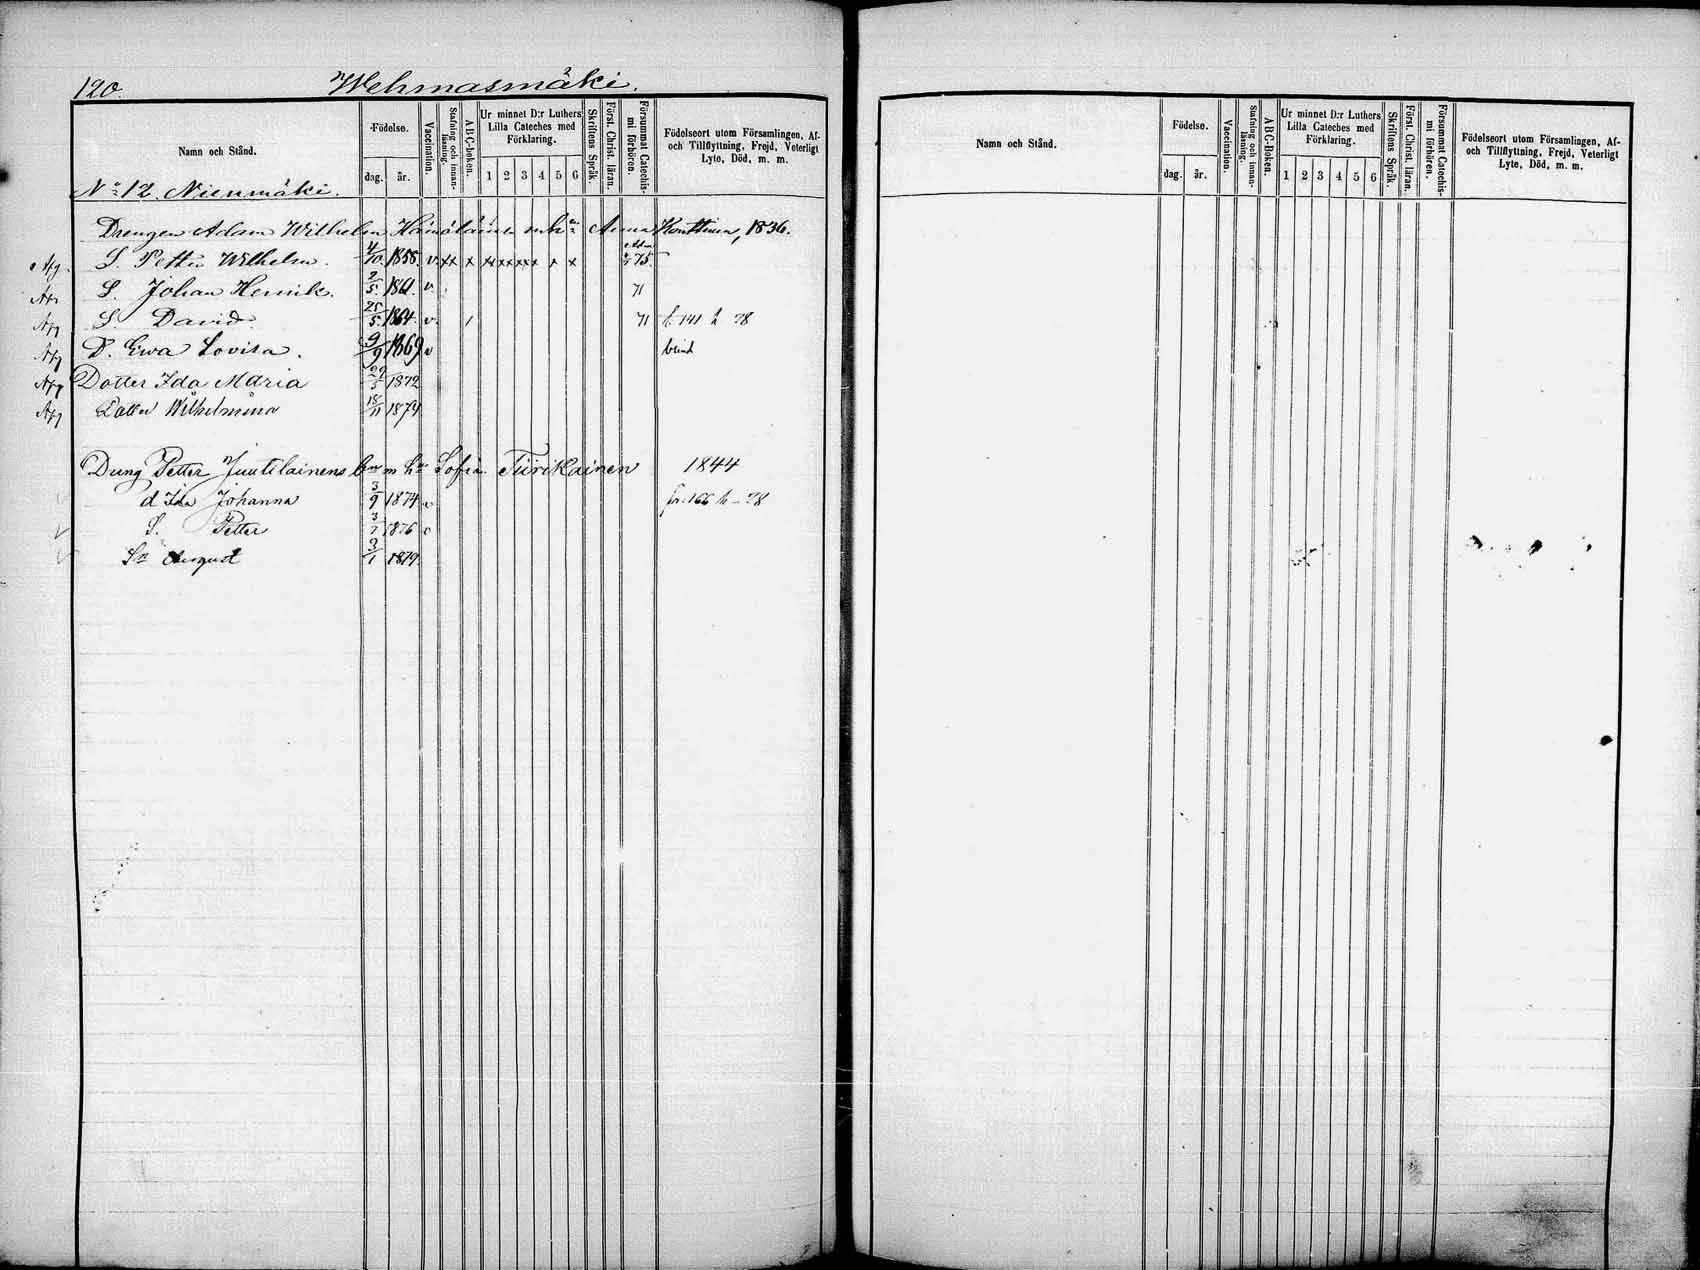 120. Wehmasmäki.
Namn och Stånd.
Födelse.
dag. år.
Vaccination.
Stafning och innanläsning.
ABC-boken.
Ur minnet D:r Luthers Lilla Cateches med Förklaring.
1 2 3 4 5 6
Skriftens Språk.
Först. Christ. läran.
Försummat Catechismi förhören.
Födelseort utom Församlingen, Af- och Tillflyttning, Frejd, Veterligt Lyte, Död, m. m.
No 12. Nienmäki.
Drengen Adam Wilhelm Anna Konttinen, 1836.
S. Petter Wilhelm. 4/10. 1858. v. x x x x x x x x x x 75.
S. Johan Henrik. 2/5. 1861. v. 71
S. David. 25/5. 1864. v. 71 141 h 78
D. Ewa Lovisa. 9/9 1869 v blind
Dotter Ida Maria 29/5 1872
Dotter Wilhelmina 18/11 1874
Dreng Petter Juutilainens m hu Sofia Tiirikainen 1844
d Ida Johanna 3/9 1874 v fr. 166 h - 78
S. Petter 3/7 1876 v
Sn August 3/1 1879.
Namn och Stånd.
Födelse.
dag. år.
Vaccination.
Stafning och innanläsning.
ABC-boken.
Ur minnet D:r Luthers Lilla Cateches med Förklaring.
1 2 3 4 5 6
Skriftens Språk.
Först. Christ. läran.
Försummat Catechismi förhören.
Födelseort utom Församlingen, Af- och Tillflyttning, Frejd, Veterligt Lyte, Död, m. m.